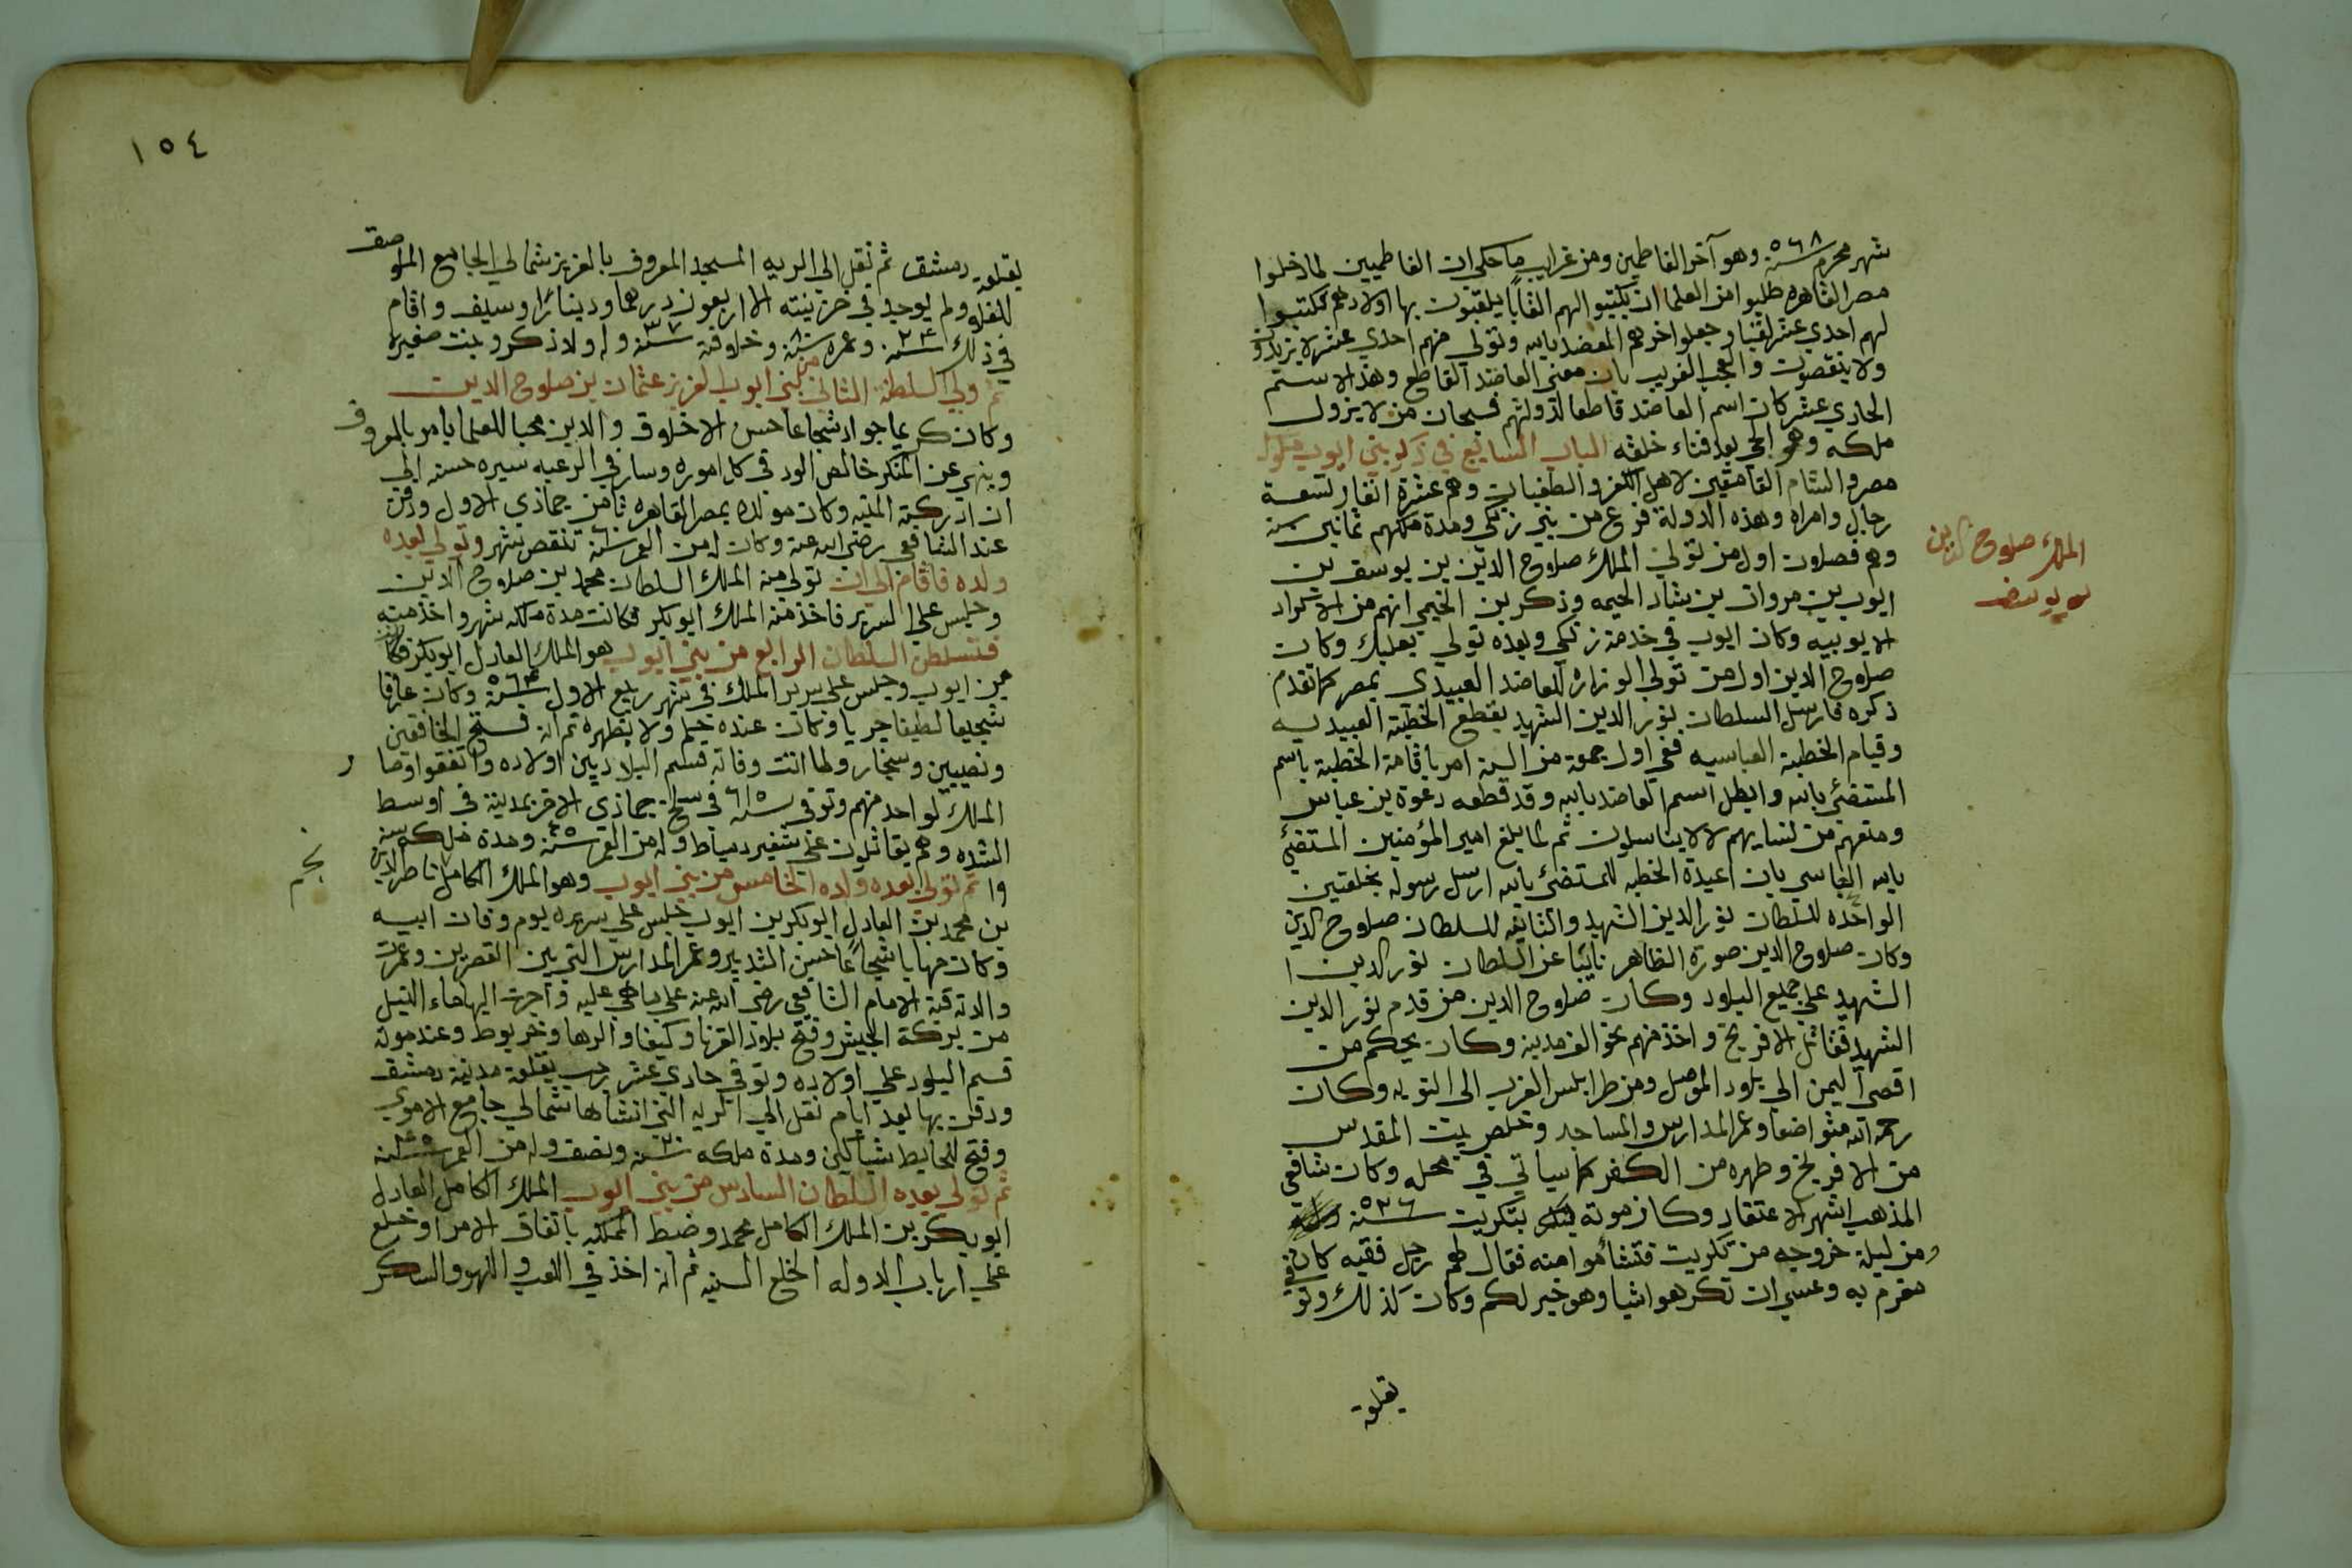 شهر محرم سنة ٥٦٨ وهو آخر الفاطمين ومن غرايب ما حكي ان الفاطميين لما دخلوا
مصر القاهره طلبوا من العلما ان يكتبوا لهم القابا يلقبون بها اولادهم فكتبوا
لهم احدي عشر لقبا وجعلوا اخرهم العضد بالله وتولي منهم احدي عشر لا يزيدون
ولا ينقصون والعجب الغريب بان معني العاضد القاطع وهذا الاسم
الحادي عشر كان اسم العاضد قاطعا لدولتهم فسبحان من لا يزول
ملكه وهو الحي بعد فناء خلقه الباب السابع في ذكر بني ايوب ملوك
مصر والشام القامقين لاهل الكفر والطغيان وهم عشرة انفار تسعة
رجال وامراه وهذه الدولة فرع من بني زنكي ومدة ملكهم ثمانين سنة
وهم فصلان اول من تولي الملك صلاح الدين بن يوسف بن
الملك صلاح الدين
بن يوسف
ايوب بن مروان بن شاد الحيمه وذكر بن الخيمي انهم من الاكراد
الايوبيه وكان ايوب في خدمة زنكي وبعده تولي بعلبك وكان
صلاح الدين اول من تولي الوزاره للعاضد العبيدي بمصر كما تقدم
ذكره فارسل السلطان نور الدين الشهيد بقطع الخطبة العبيديه
وقيام الخطبة العباسيه ففي اول جمعة من السنة امر باقامة الخطبة باسم
المستضئ بالله وابطل اسم العاضد بالله وقد قطعه دعوة بن عباس
ومنعهم من نسايهم لالا يتناسلون ثم لما بلغ امير المؤمنين المستضئ
بالله العباسي بان اعيدة الخطبه للمستضئ بالله ارسل رسوله بخلعتين
الواحده للسلطان نور الدين الشهيد والثانيه للسلطان صلاح الدين
وكان صلاح الدين صورة الظاهر نائبا عن السلطان نور الدين
الشهيد علي جميع البلاد وكان صلاح الدين من قدم نور الدين
الشهيد فقاتل الافرنج واخذ منهم نحو الف مدينه وكان يحكم من
اقصى اليمن الي بلاد الموصل ومن طرابلس الغرب الى النوبه وكان
رحمه الله متواضعا وعمر المدارس والمساجد وخلص بيت المقدس
من الافرنج وطهره من الكفر كما سياتي في محله وكان شافعي
المذهب اشهر الاعتقاد وكان موته بتكريت سنة ٥٣٦
ومن ليلة خروجه من تكريت فتشأموا منه فقال لهم رجل فقيه كان في
مقرم به وعسي ان تكرهوا شيا وهو خير لكم وكان كذلك وتوفي
بقلعة
١٥٤
بقلعة دمشق ثم نقل الي الربه المسجد المعروف بالعزيز شمالي الجامع الملاصق
للقلعه ولم يوجد في خزينته الا اربعون درهما ودينارا وسيف واقام
في ذلك سنة ٢٤ وعمره وخلافته سنة وله اولاد ذكر وبنت صغيره
ثم ولي السلطنة الثاني من بني ايوب العزيز عثمان بن صلاح الدين
وكان كريما جوادا شجاعا حسن الاخلاق والدين محبا للعلما يامر بالمعروف
وينهي عن المنكر خالص الود في كل اموره وسار في الرعيه سيره حسنه الي
ان ادركته المنيه وكان مولده بمصر القاهره ثامن جماذي الاول ودفن
عند الشافعي رضي الله عنه وكان له من العمر سنة تنقص شهر وتولي بعده
ولده فاقام الي ان تولي منه الملك السلطان محمد بن صلاح الدين
وجلس علي السرير فاخذ منه الملك ابو بكر فكانت مدة ملكه شهر واخذ منه
فتسلطن السلطان الرابع من بني ايوب هو الملك العادل ابو بكر فكان
من ايوب وجلس علي سرير الملك في شهر ربيع الاول سنة وكان عارفا
شجيعا لطيفا جريا وكان عنده حلم ولا يظهره ثم انه فتح الخافقين
ونصيبين وسنجار ولما انت وفاته قسم البلاد بين اولاده واتفقوا وصار
الملك لواحد منهم وتوفي سنة ٦١٥ في سلخ جماذي الاخر بمدينة في اوسط
الشده وهم يقاتلون علي ثغير دمياط وله من العمر سنة ومدة ملكه سنة
ثم تولي بعده ولده الخامس من بني ايوب وهو الملك الكامل ناصر الدين
نجم
بن محمد بن العادل ابو بكر بن ايوب جلس علي سريره يوم وفات ابيه
وكان مهابا شجاعا حسن التدبير وعمر المدارس التي بين القصرين وعمرت
والدته قبة الامام الشافعي رضي الله عنه علي ما هي عليه واجرت اليها ماء النيل
من بركة الحبش وفتح بلاد القرنا وكيفا والرها وخربوط وعند موته
قسم البلاد علي اولاده وتوفي حادي عشر رجب بقلعة مدينة دمشق
ودفن بها بعد ايام نقل الي الربه التي انشاها شمالي جامع الاموي
وفتح للحايط شباكين ومدة ملكه سنة ٢٠ ونصف وله من العمر سنة
ثم تولي بعده السلطان السادس من بني ايوب الملك الكامل العادل
ابو بكر بن الملك الكامل محمد وضبط المملكه باتفاق الامرا وخلع
علي ارباب الدوله الخلع السنيه ثم انه اخذ في اللعب واللهو والسكر